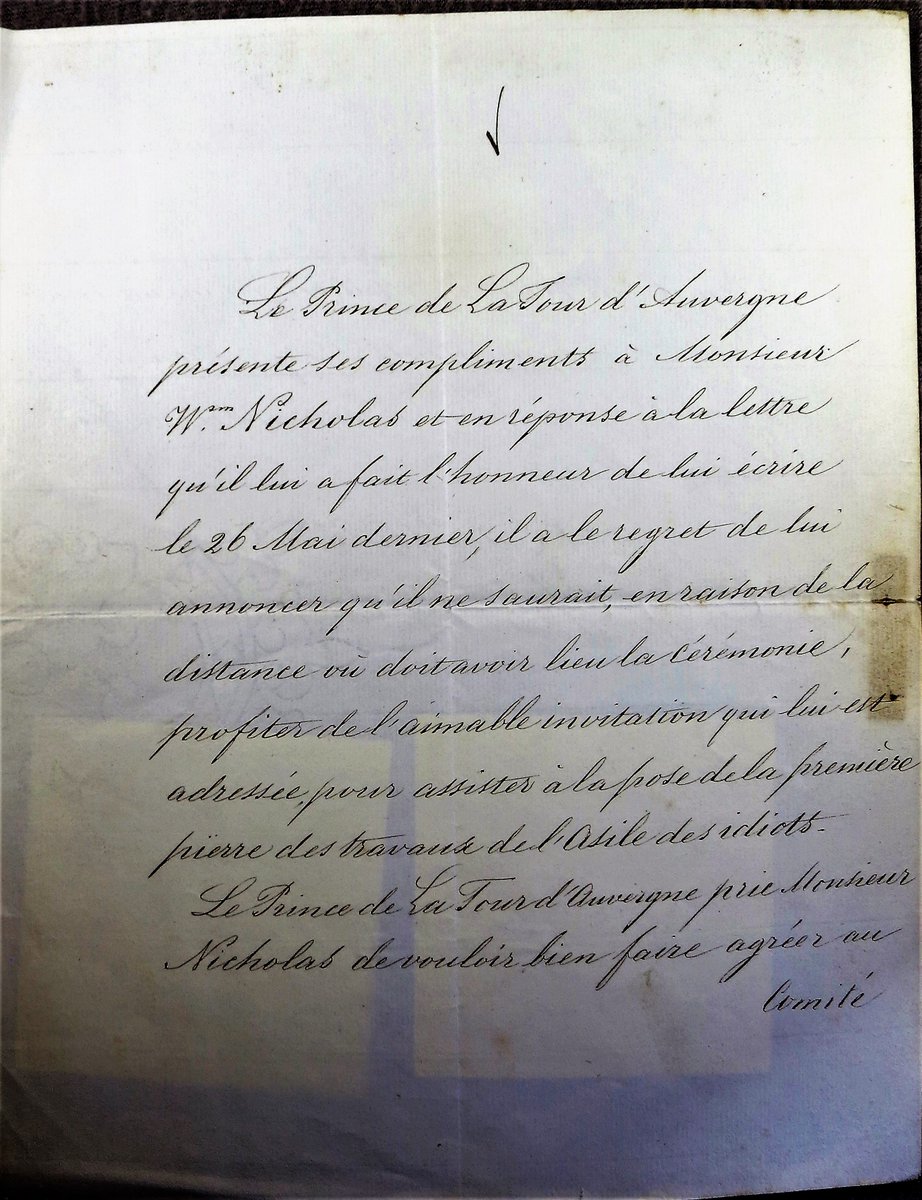 Le Prince de La Tour d'Auvergne
présente ses compliments à Monsieur
Wm. Nicholas et en réponse à la lettre
qu'il lui a fait l'honneur de lui écrire
le 26 Mai dernier, il a le regret de lui
annoncer qu'il ne saurait, en raison de la
distance où doit avoir lieu la Cérémonie,
profiter de l'aimable invitation qui lui est
adressée, pour assister à la pose de la première
pierre des travaux de l'Asile des idiots.
Le Prince de La Tour d'Auvergne prie Monsieur
Nicholas de vouloir bien faire agréer au
Comité